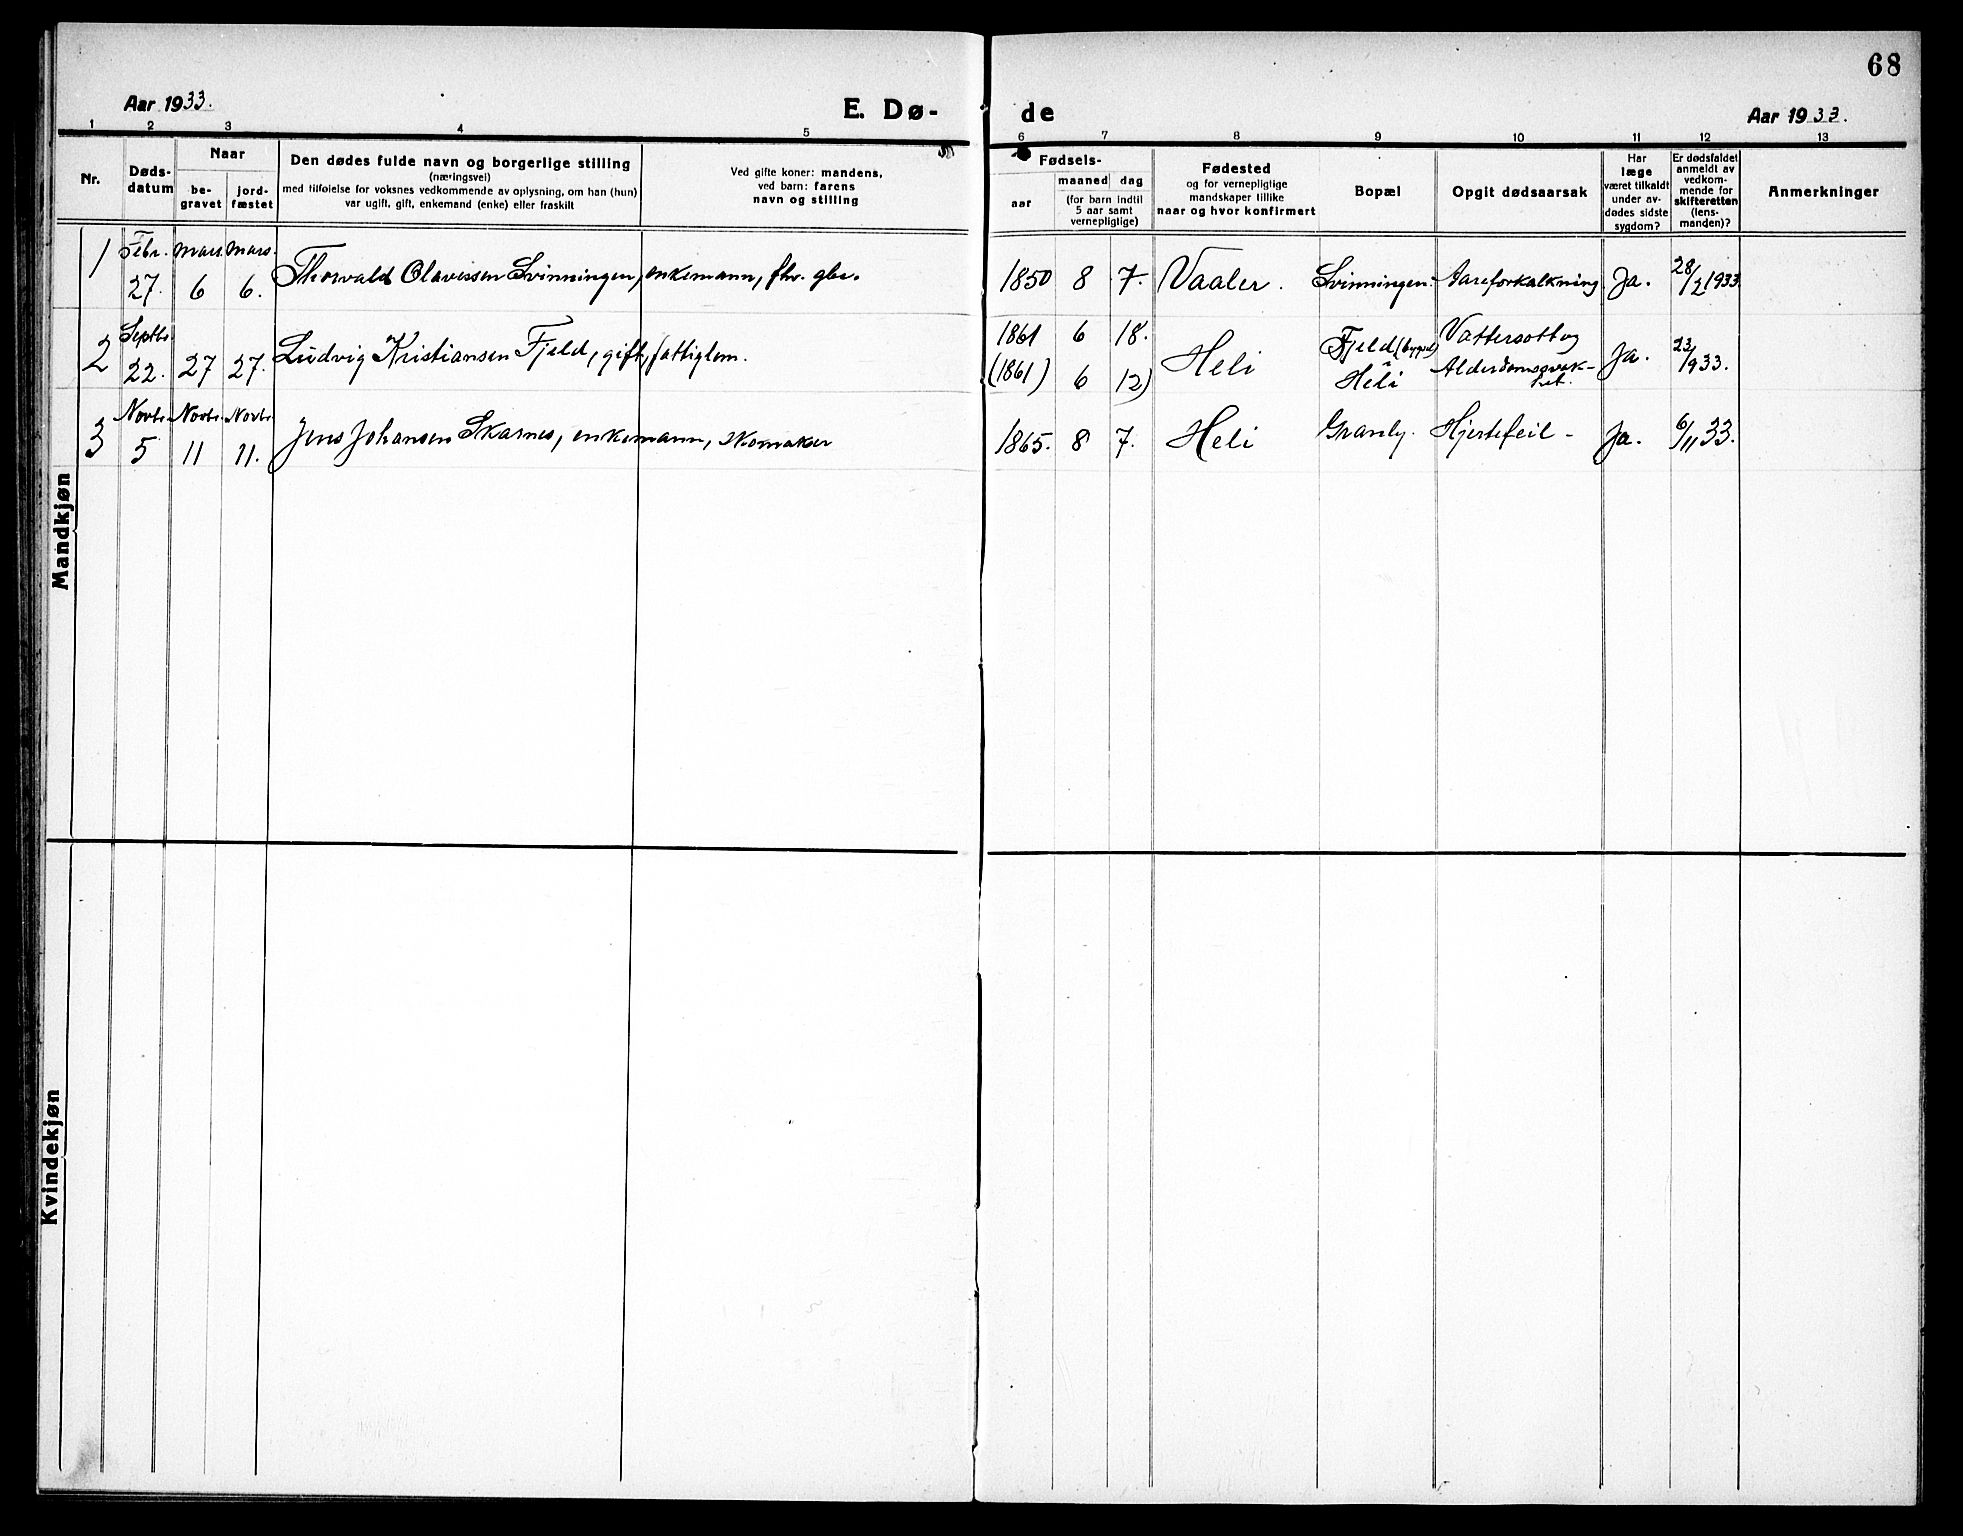 68
Aar 1933.
E. Dø-
de
Aar 1933.
1 2 3 4 5 6 7 8 9 10 11 12 13
Nr.
Døds-
datum
Naar
be-
gravet
jord-
fæstet
Den dødes fulde navn og borgerlige stilling
(næringsvei)
med tilføielse for voksnes vedkommende av oplysning, om han (hun)
var ugift, gift, enkemand (enke) eller fraskilt
Ved gifte koner: mandens,
ved barn: farens
navn og stilling
Fødsels-
aar
maaned dag
(for barn indtil
5 aar samt
vernepligtige)
Fødested
og for vernepligtige
mandskaper tillike
naar og hvor konfirmert
Bopæl
Opgit dødsaarsak
Har
læge
været tilkaldt
under av-
dødes sidste
sygdom?
Er dødsfaldet
anmeldt av
vedkom-
mende for
skifteretten
(lens-
manden)?
Anmerkninger
Mandkjøn
1 Febr. 27. Mars 6 Mars. 6. Thorvald Olavessen Svinningen, enkemann, fhv. gbr. 1850 8 7. Vaaler. Svinningen. Aareforkalkning Ja. 28/2 1933
2 Septbr 22. 27 27. Ludvig Kristiansen Fjeld, gift, fattiglem. 1861 6 18. (1861) 6 12) Heli Fjeld
Heli Vattersott og
Alderdomssvak-
het. Ja. 23/9 33.
3 Novbr. 5 Novbr. 11 Novbr. 11. Jens Johansen Skarnes, enkemann, skomaker 1865. 8 7. Heli Granly. Hjertefeil - Ja. 6/11 33.
Kvindekjøn